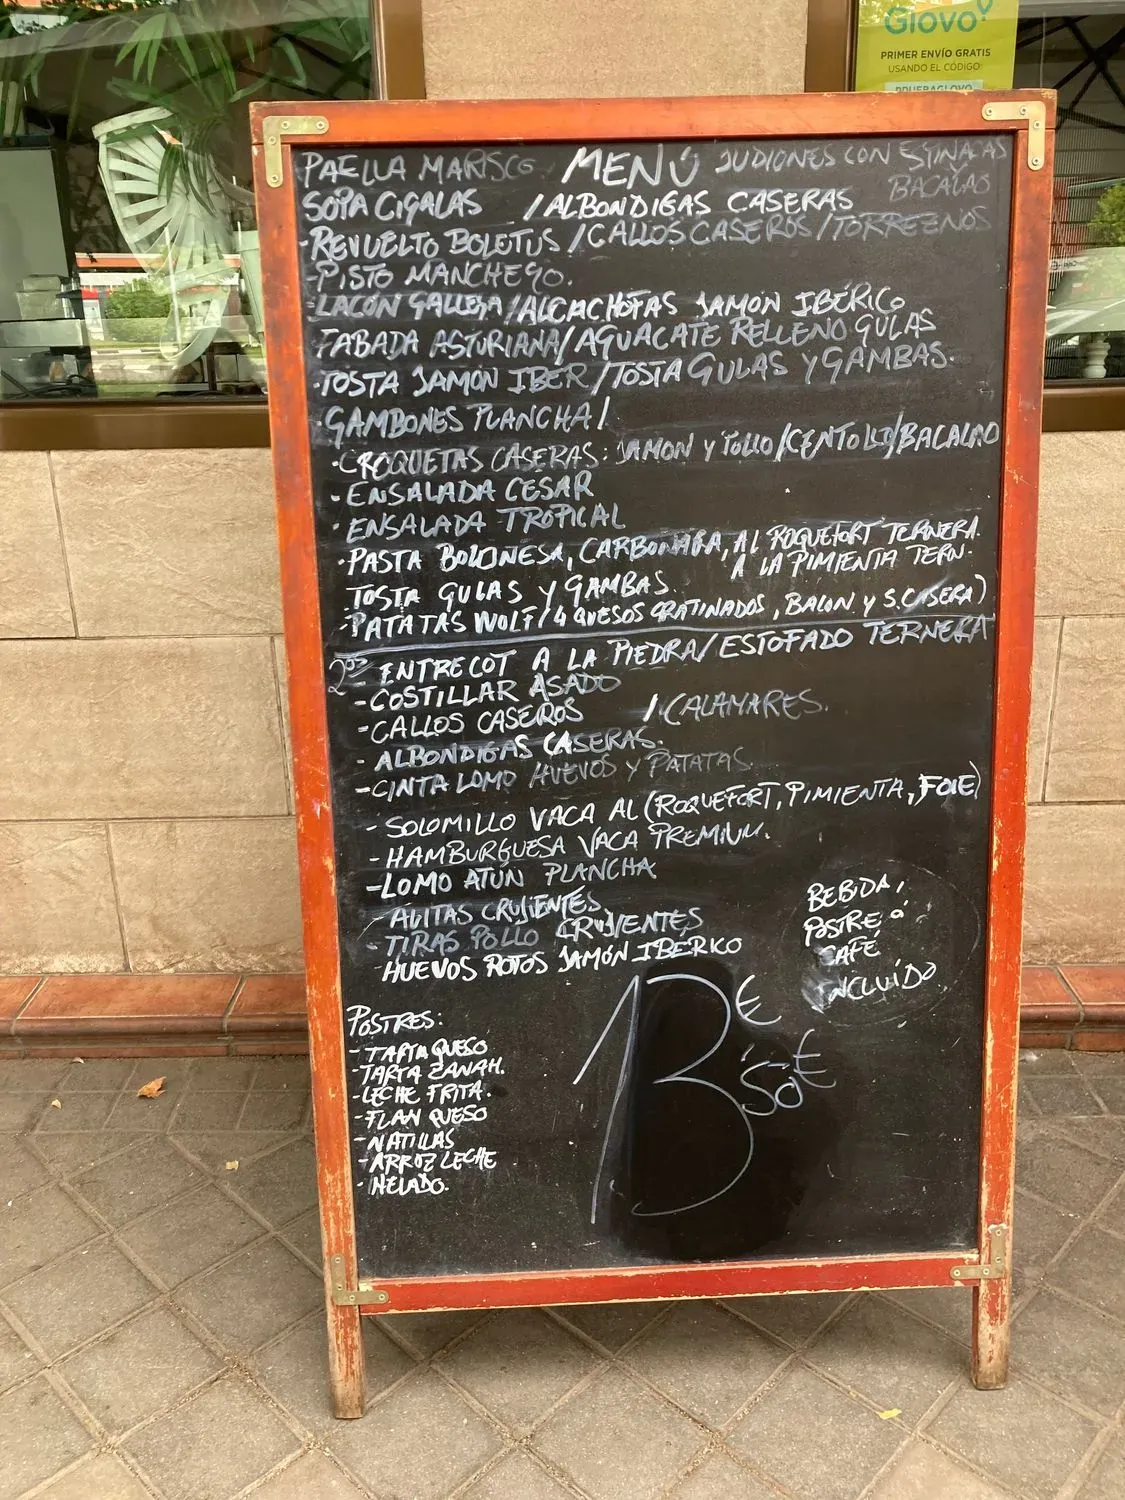 Glovo
PRIMER ENVÍO GRATIS
USANDO EL CÓDIGO:
PRUEBAGLOVO
PAELLA MARSCO MENÚ JUDIONES CON ESPINACAS
BACALAO
SOPA CIGALAS / ALBONDIGAS CASERAS
-REVUELTO BOLETUS / CALLOS CASEROS / TORREZNOS
-PISTO MANCHEGO.
-LACÓN GALLEGA / ALCACHOFAS JAMÓN IBÉRICO
FABADA ASTURIANA / AGUACATE RELLENO GULAS
·TOSTA JAMÓN IBER / TOSTA GULAS Y GAMBAS.
·GAMBONES PLANCHA /
·CROQUETAS CASERAS: JAMON Y POLLO / CENTOLLO / BACALAO
·ENSALADA CESAR
·ENSALADA TROPICAL
·PASTA BOLONESA, CARBONARA, AL ROQUEFORT TERNERA.
A LA PIMIENTA TERN.
TOSTA GULAS Y GAMBAS.
·PATATAS WOLF / 4 QUESOS GRATINADOS, BACON Y S. CASERA)
2os ENTRECOT A LA PIEDRA / ESTOFADO TERNERA
-COSTILLAR ASADO
-CALLOS CASEROS / CALAMARES.
-ALBONDIGAS CASERAS.
-CINTA LOMO HUEVOS Y PATATAS
-SOLOMILLO VACA AL (ROQUEFORT, PIMIENTA, FOIE)
-HAMBURGUESA VACA PREMIUM.
-LOMO ATÚN PLANCHA
-ALITAS CRUJIENTES
-TIRAS POLLO CRUJIENTES
-HUEVOS ROTOS JAMÓN IBERICO
BEBIDA,
POSTRE ó
CAFÉ
INCLUÍDO
13'50€
€
POSTRES:
-TARTA QUESO
-TARTA ZANAH.
-LECHE FRITA.
-FLAN QUESO
-NATILLAS
-ARROZ LECHE
·HELADO.